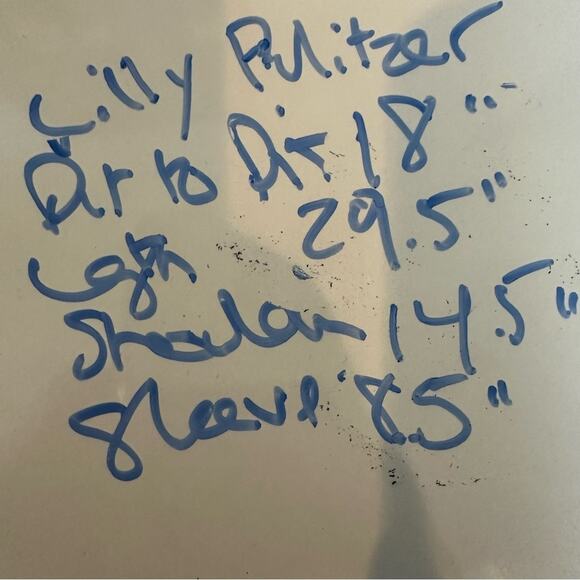 Lilly Pulitzer
Pit to Pit 18"
Lgth 29.5"
Shoulder 14.5"
Sleeve 8.5"